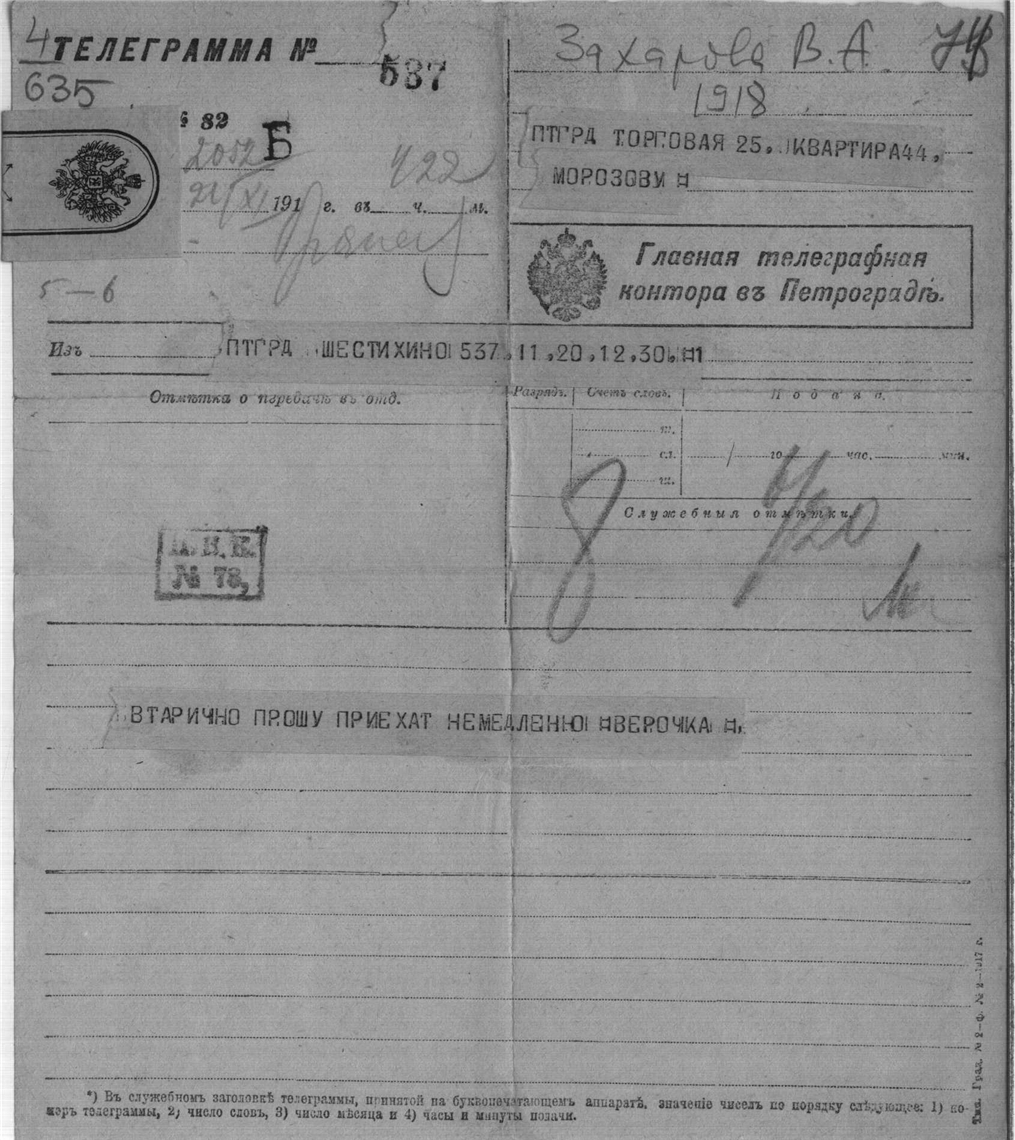 4
635
ТЕЛЕГРАММА № 537
Захарова В. А.
1918
№ 82
Б
2052
422
21/XI 191 г. въ ч. м.
5-6
ПТГРД ТОРГОВАЯ 25. КВАРТИРА44.
МОРОЗОВУ ¤
Главная телеграфная
контора въ Петроградѣ.
Изъ ПТГРД ШЕСТИХИНО 537.11.20.12.30.¤1
Отмѣтка о передачѣ въ отд.
Разрядъ. Счетъ словъ. Подача.
ш.
сл. / го час. мин.
ш.
Служебныя отмѣтки.
8
№ 78,
ВТАРИЧНО ПРОШУ ПРИЕХАТ НЕМЕДЛЕННО ¤ВЕРОЧКА ¤.
*) Въ служебномъ заголовкѣ телеграммы, принятой на буквопечатающемъ аппаратѣ, значеніе чиселъ по порядку слѣдующее: 1) но-
меръ телеграммы, 2) число словъ, 3) число мѣсяца и 4) часы и минуты подачи.
Тип. Град. № 2—ф. № 2—1917 г.